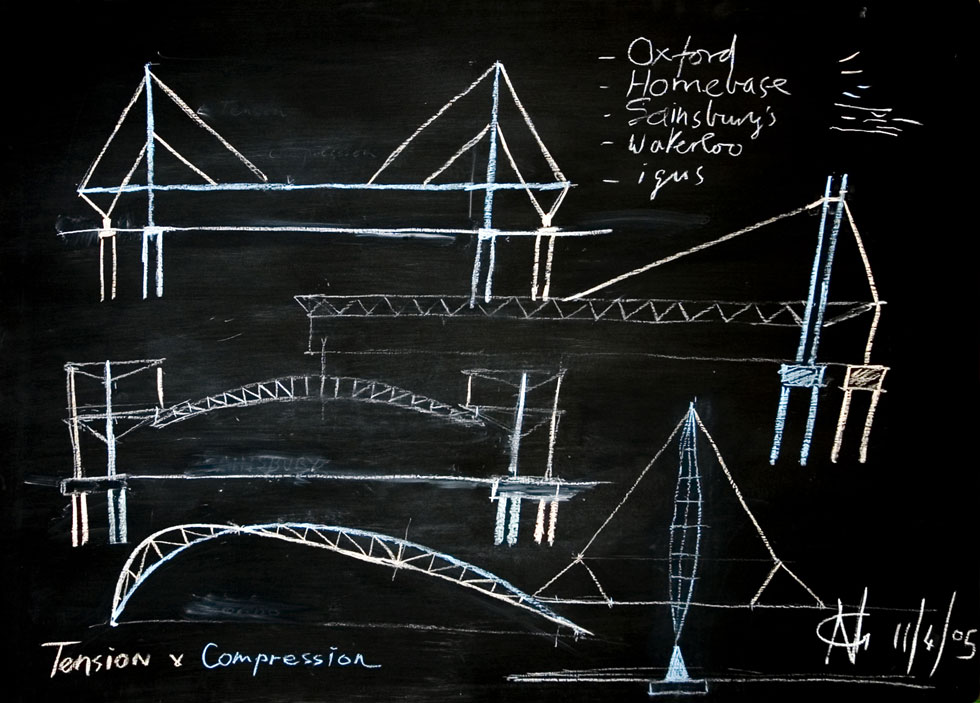 - Oxford
- Homebase
- Sainsbury's
- Waterloo
- igus
Tension v Compression
11/4/05